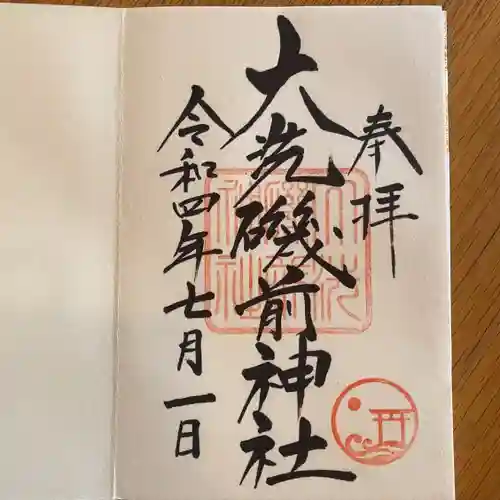 奉拝
大洗磯前神社
令和四年七月一日